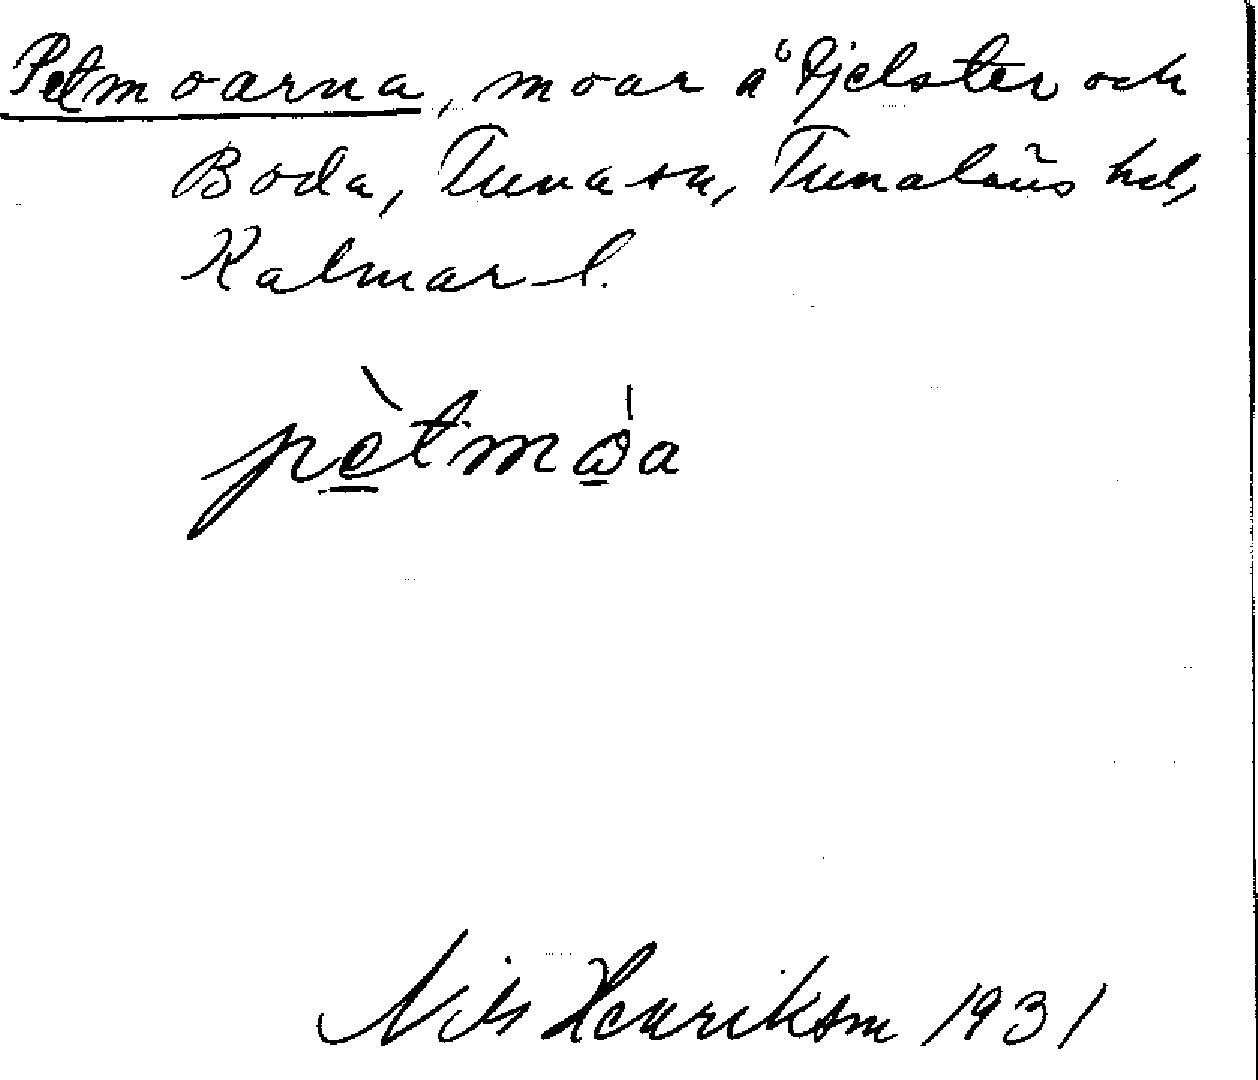 Petmoarna, moar å Pjelster och
Boda, Tuna sn, Tunaläns hd,
Kalmar l.
pètmɷ̀a
Nils Henrikson 1931